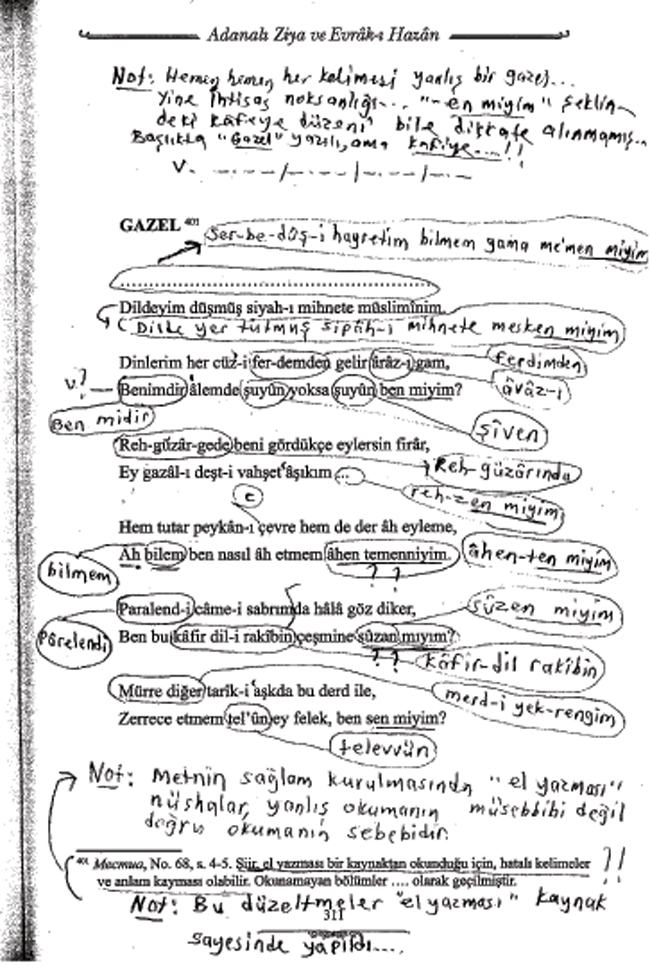 Adanalı Ziya ve Evrâk-ı Hazân
Not: Hemen hemen her kelimesi yanlış bir gazel...
Yine ihtisas noksanlığı... "-en miyim" şeklin-
deki kâfiye düzeni bile dikkate alınmamış..
Başlıkta "Gazel" yazılı, ama kafiye....!!
V. _._ _/_._ _/_._ _/_._
GAZEL 401
Ser-be-dûş-i hayretim bilmem gama me'men miyim
........................................................................
Dildeyim düşmüş siyah-ı mihnete müsliminim,
(Dilde yer tutmuş sipâh-i mihnete mesken miyim
Dinlerim her cüz-i fer-demden gelir âraz-ı gam,
ferdimden
V? Benimdir âlemde şuyûn yoksa şuyûn ben miyim?
âvâz-ı
Ben midir
şîven
Reh-güzâr-gede beni gördükçe eylersin firâr,
Reh-güzârında
Ey gazâl-ı deşt-i vahşet âşıkım ...
reh-zen miyim
c
Hem tutar peykân-ı çevre hem de der âh eyleme,
Ah bilem ben nasıl âh etmem âhen temenniyim.
âhen-ten miyim
bilmem
? ?
Paralend-i câme-i sabrımda hâlâ göz diker,
sûzen miyim
Ben bu kâfir dil-i rakîbin çeşmine sûzan mıyım?
Pârelendi
? ?
kâfir-dil rakibin
Mürre diğer tarîk-i aşkda bu derd ile,
merd-i yek-rengim
Zerrece etmem tel'ûn ey felek, ben sen miyim?
televvün
Not: Metnin sağlam kurulmasında "el yazması"
nüshalar, yanlış okumanın müsebbibi değil
doğru okumanın sebebidir.
401 Mecmua, No. 68, s. 4-5. Şiir, el yazması bir kaynaktan okunduğu için, hatalı kelimeler
ve anlam kayması olabilir. Okunamayan bölümler .... olarak geçilmiştir.
?!
!!
Not: Bu düzeltmeler "el yazması" kaynak
311
sayesinde yapıldı....